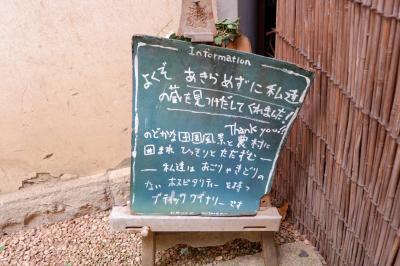 Information
よくぞ あきらめずに私達
の蔵を見つけだしてくれました!
Thank you!!
のどかな田園風景と農村に
囲まれ ひっそりとただずむ
私達は おごりやきどりの
ない ホスピタリティーを持つ
ブティックワイナリーです